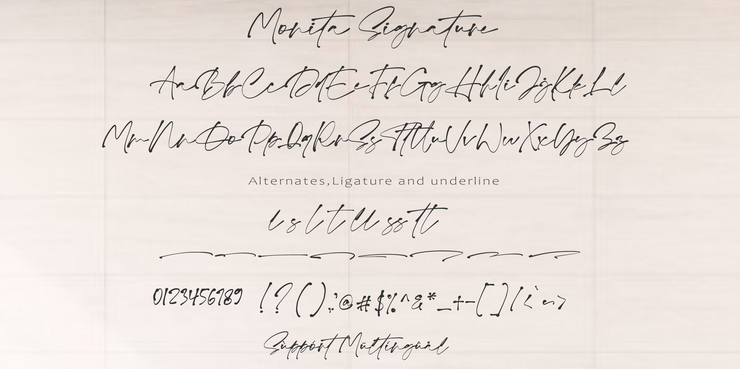 Monita Signature
AaBbCcDdEeFfGgHhIiJjKkLl
MmNnOoPpQqRrSsTtUuVvWwXxYyZz
Alternates,Ligature and underline
l s l t ll ss tt
0123456789 !?().,:;@#$%^&*_+-[]
Support Multingual